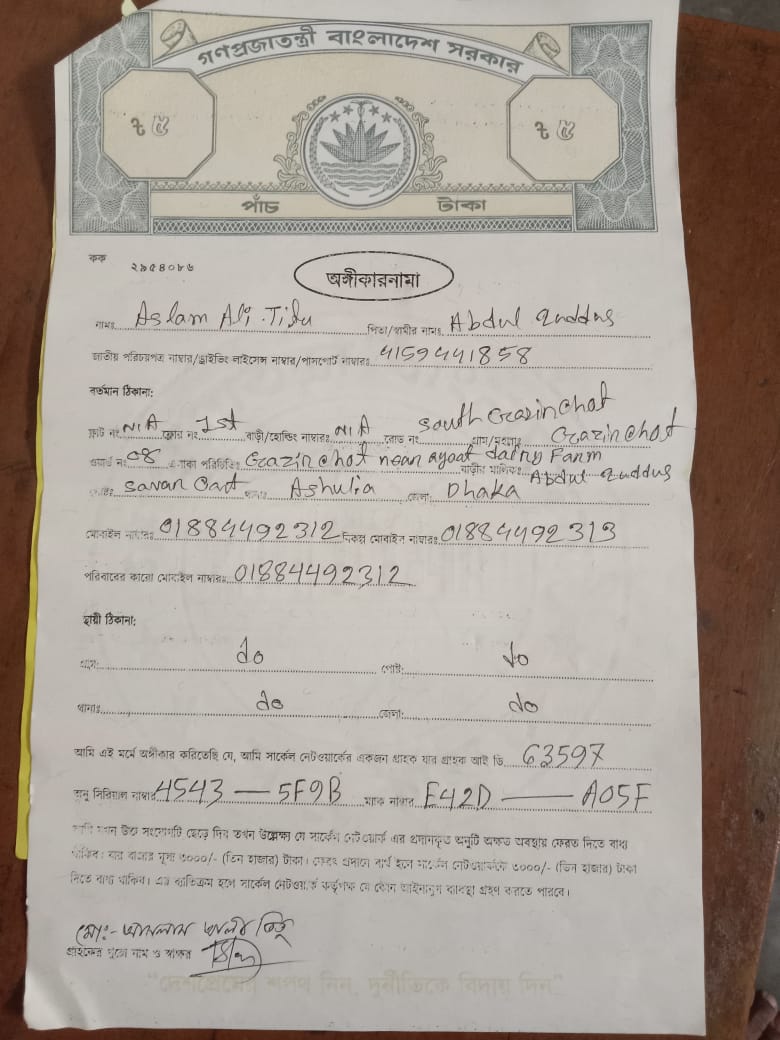 গণপ্রজাতন্ত্রী বাংলাদেশ সরকার
৳ ৫ ৳ ৫
পাঁচ টাকা
কক ২৯৫৪০৮৬
অঙ্গীকারনামা
নামঃ Aslam Ali Titu পিতা/স্বামীর নামঃ Abdul Quddus
জাতীয় পরিচয়পত্র নাম্বার/ড্রাইভিং লাইসেন্স নাম্বার/পাসপোর্ট নাম্বারঃ 4159441858
বর্তমান ঠিকানা:
ফ্লাট নং N/A ফ্লোর নং 1st বাড়ী/হোল্ডিং নাম্বারঃ N/A রোড নং South Gazirchot গ্রাম/মহল্লাঃ Gazirchot
ওয়ার্ড নং 08 এলাকা পরিচিতিঃ Gazirchot near ayat dairy Farm বাড়ীর মালিকঃ Abdul Quddus
Savar Cant থানাঃ Ashulia জেলা: Dhaka
মোবাইল নাম্বারঃ 01884492312 বিকল্প মোবাইল নাম্বারঃ 01884492313
পরিবারের কারো মোবাইল নাম্বারঃ 01884492312
স্থায়ী ঠিকানা:
গ্রাম: do পোষ্ট: do
থানাঃ do জেলা: do
আমি এই মর্মে অঙ্গীকার করিতেছি যে, আমি সার্কেল নেটওয়ার্কের একজন গ্রাহক যার গ্রাহক আই ডি 63597
অনু সিরিয়াল নাম্বার 4543 — 5F9B ম্যাক নাম্বার E42D — A05F
আমি যখন উক্ত সংযোগটি ছেড়ে দিব তখন উল্লেক্ষ্য যে সার্কেল নেটওয়ার্ক এর প্রদানকৃত অনুটি অক্ষত অবস্থায় ফেরত দিতে বাধ্য
থাকিব। যার বাজার মূল্য ৩০০০/- (তিন হাজার) টাকা। ফেরৎ প্রদানে ব্যর্থ হলে সার্কেল নেটওয়ার্ককে ৩০০০/- (তিন হাজার) টাকা
দিতে বাধ্য থাকিব। এর ব্যতিক্রম হলে সার্কেল নেটওয়ার্ক কর্তৃপক্ষ যে কোন আইনানুগ ব্যবস্থা গ্রহণ করতে পারবে।
মোঃ- আসলাম আলী তিতু
গ্রাহকের পুরো নাম ও স্বাক্ষর
"দেশপ্রেমের শপথ নিন, দুর্নীতিকে বিদায় দিন"